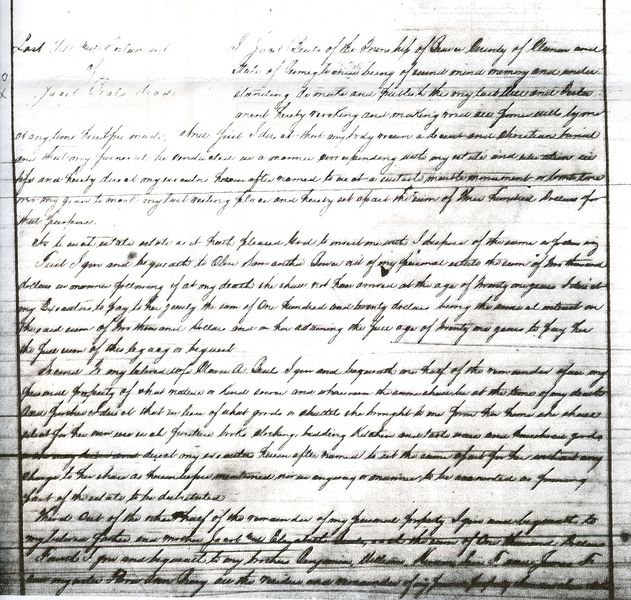 Last Will and Testament
of
dead
I of the Township of County of and
State of Pennsylvania being of sound mind memory and under
standing do make and publish this my last Will and Testa
ment hereby revoking and making void all former wills by me
at any time heretofore made. And first I direct that my body receive a decent and Christian burial
and that my funeral be conducted in a manner corresponding with my estate and situation in
life and hereby direct my executor herein after named to erect a suitable marble monument or tombstone
over my grave to mark my last resting place and hereby set apart the sum of three hundred dollars for
that purpose.
As to such estate as it hath pleased God to intrust me with I dispose of the same as follows viz
First I give and bequeath to Samantha out of my personal estate the sum of two thousand
dollars in manner following if at my death she shall not have arrived at the age of twenty one years I direct
my Executor to pay to her yearly the sum of One Hundred and twenty dollars being the annual interest on
the said sum of two thousand dollars and on her attaining the full age of twenty one years to pay her
the full sum of this legacy or bequest
Second To my beloved wife A. I give and bequeath one half of the remainder of all my
personal property of what nature or kind soever and wheresoever the same shall be at the time of my death
And further I direct that in lieu of what goods or chattels she brought to me from her home she choose
select for her own use such furniture books clocks, bedding Kitchen and table ware and household goods
direct my executor herein after named to set the same apart for her without any
charge to her share as herein before mentioned nor in any way or manner to be accounted as forming
part of the estate to be distributed
Third Out of the other half of the remainder of my personal property I give and bequeath to
my beloved father and mother and Elizabeth the sum of One thousand Dollars
Fourth I give and bequeath to my brothers Benjamin, William, James
and my sister all the residue and remainder of my personal property